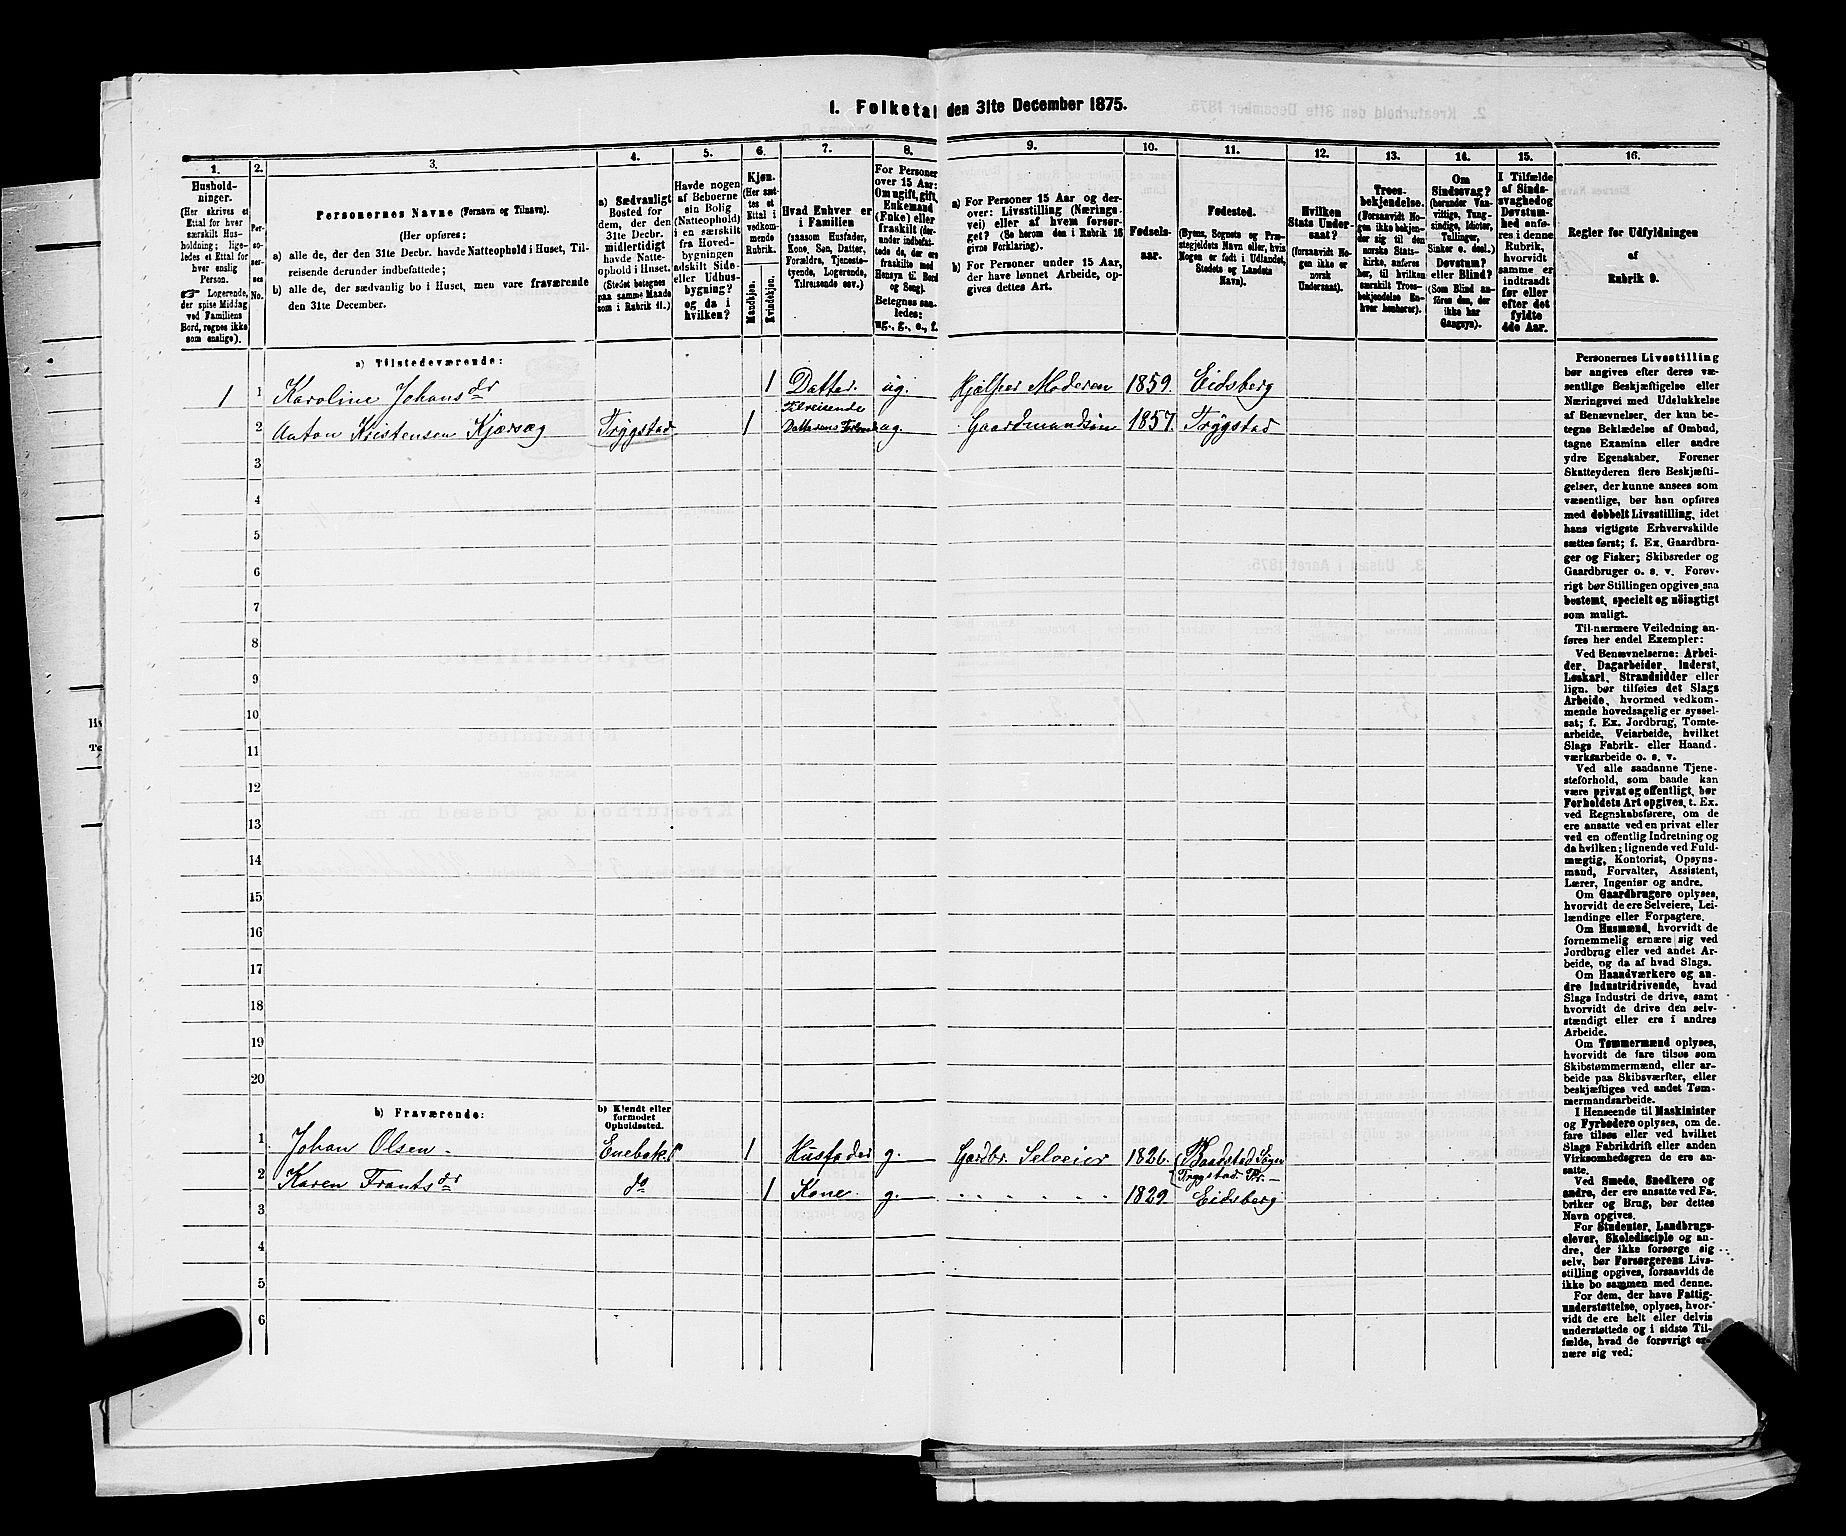 1. Folketal den 31te December 1875.
1. 2. 3. 4. 5. 6. 7. 8. 9. 10. 11. 12. 13. 14. 15. 16.
Hushold-
ninger.
(Her skrives et
Ettal for hver
særskilt Hus-
holdning; lige-
ledes et Ettal for
hver enslig
Person.
☛ Logerende,
der spise Middag
ved Familiens
Bord, regnes ikke
som enslige).
Per-
so-
ner-
nes
No.
Personernes Navne (Fornavn og Tilnavn).
(Her opføres:
a) alle de, der den 31te Decbr. havde Natteophold i Huset, Til-
reisende derunder indbefattede;
b) alle de, der sædvanlig bo i Huset, men vare fraværende
den 31te December.
a) Sædvanligt
Bosted for
dem, der den
31te Decbr.
midlertidigt
havde Natte-
ophold i Huset.
(Stedet betegnes
paa samme Maade
som i Rubrik 11.)
Havde nogen
af Beboerne
sin Bolig
(Natteophold)
i en særskilt
fra Hoved-
bygningen
adskilt Side-
eller Udhus-
bygning?
og da i
hvilken?
Kjøn.
(Her sæt-
tes et
Ettal i
vedkom-
mende
Rubrik.
Mandkjøn.
Kvindekjøn.
Hvad Enhver er
i Familien
(saasom Husfader,
Kone, Søn, Datter,
Forældre, Tjeneste-
tyende, Logerende,
Tilreisende osv.)
For Personer
over 15 Aar:
Om ugift, gift,
Enkemand
(Enke) eller
fraskilt (der-
under indbefat-
tede de, der ere
fraskilte med
Hensyn til Bord
og Seng).
Betegnes saa-
ledes:
ug., g., e., f.
a) For Personer 15 Aar og der-
over: Livsstilling (Nærings-
vei) eller af hvem forsør-
get? (Se herom den i Rubrik 16
givne Forklaring).
b) For Personer under 15 Aar,
der have lønnet Arbeide, op-
gives dettes Art.
Fødsels-
aar.
Fødested.
(Byens, Sognets og Præ-
stegjeldets Navn eller, hvis
Nogen er født i Udlandet,
Stedets og Landets
Navn).
Hvilken
Stats Under-
saat?
(forsaavidt No-
gen ikke er
norsk
Undersaat).
Troes-
bekjendelse.
(Forsaavidt No-
gen ikke bekjen-
der sig til den
norske Stats-
kirke, anføres
her, til hvilken
særskilt Troes-
bekjendelse En-
hver henhører).
Om
Sindssvag?
(herunder Van-
vittige, Tung-
sindige, Idioter,
Tullinger,
Sinker o. desl.)
Døvstum?
eller Blind?
(Som Blind an-
føres den, der
ikke har
Gangsyn).
I Tilfælde
af Sinds-
svaghed og
Døvstum-
hed anfø-
res i denne
Rubrik,
hvorvidt
samme er
indtraadt
før eller
efter det
fyldte
4de Aar.
Regler for Udfyldningen
af
Rubrik 9.
a) Tilstedeværende:
1 1 Karoline Johansdr 1 Datter. ug. Hjælper Moderen 1859. Eidsberg
2 Anton Kristensen Kjærsøg Trygstad 1 Tilreisende ug. Gaardmandssøn 1857. Trygstad
3
4
5
6
7
8
9
10
11
12
13
14
15
16
17
18
19
20
b) Fraværende:
b) Kjendt eller
formodet
Opholdssted.
1 Johan Olsen - Enebak 1 Husfader g. Gardbr. Selveier 1826. Baadstad Sogn
Trygstad Pr. -
2 Karen Frantsdr do 1 Kone. g. 1829. Eidsberg
3
4
5
6
Personernes Livsstilling
bør angives efter deres væ-
sentlige Beskjæftigelse eller
Næringsvei med Udelukkelse
af Benævnelser, der kun be-
tegne Beklædelse af Ombud,
tagne Examina eller andre
ydre Egenskaber. Forener
Skatteyderen flere Beskjæfti-
gelser, der kunne ansees som
væsentlige, bør han opføres
med dobbelt Livsstilling, idet
hans vigtigste Erhvervskilde
sættes først; f. Ex. Gaardbru-
ger og Fisker; Skibsreder og
Gaardbruger o. s. v. Forøv-
rigt bør Stillingen opgives saa
bestemt, specielt og nöiagtigt
som muligt.
Til nærmere Veiledning an-
føres her endel Exempler:
Ved Benævnelserne: Arbei-
der, Dagarbeider, Inderst,
Løskarl, Strandsidder eller
lign. bør tilføies det Slags
Arbeide, hvormed vedkom-
mende hovedsagelig er syssel-
sat; f. Ex. Jordbrug, Tomte-
arbeide, Veiarbeide, hvilket
Slags Fabrik- eller Haand-
værksarbeide o. s. v.
Ved alle saadanne Tjene-
steforhold, som baade kan
være privat og offentligt, bør
Forholdets Art opgives, t. Ex.
ved Regnskabsførere, om de
ere ansatte ved en privat eller
ved en offentlig Indretning og
da hvilken; lignende ved Fuld-
mægtig, Kontorist, Opsyns-
mand, Forvalter, Assistent,
Lærer, Ingeniør og andre.
Om Gaardbrugere oplyses,
hvorvidt de ere Selveiere, Lei-
lændinge eller Forpagtere.
Om Husmænd, hvorvidt de
fornemmelig ernære sig ved
Jordbrug eller ved andet Ar-
beide, og da af hvad Slags.
Om Haandværkere og an-
dre Industridrivende, hvad
Slags Industri de drive, samt
hvorvidt de drive den selv-
stændigt eller ere i andres
Arbeide.
Om Tømmermænd oplyses,
hvorvidt de fare tilsøs som
Skibstømmermænd, eller ar-
beide paa Skibsværfter, eller
beskjæftiges ved andet Tøm-
mermandsarbeide.
I Henseende til Maskinister
og Fyrbødere oplyses, om de
fare tilsøs eller ved hvilket
Slags Fabrikdrift eller anden
Virksomhedsgren de ere an-
satte.
Ved Smede, Snedkere og
andre, der ere ansatte ved Fa-
briker og Brug, bør dettes
Navn opgives.
For Studenter, Landbrugs-
elever, Skoledisciple og an-
dre, der ikke forsørge sig
selv, bør Forsørgerens Livs-
stilling opgives, forsaavidt de
ikke bo sammen med denne.
For dem, der have Fattig-
understøttelse, oplyses, hvor-
vidt de ere helt eller delvis
understøttede og i sidste Til-
fælde, hvad de forøvrigt er-
nære sig ved.